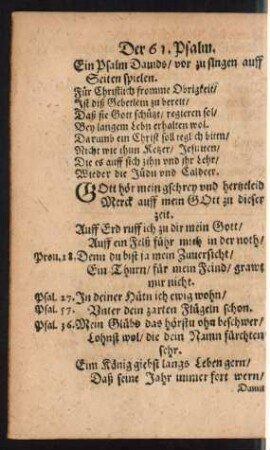 Der 61. Psalm.
Ein Psalm Dauids/ vor zu singen auff
Seiten spielen.
Für Christlich fromme Obrigkeit/
Ist diß Gebetlein zu bereit/
Daß sie Gott schützt/ regieren sol/
Bey langem Lebn erhalten wol.
Darumb ein Christ soll teglich bitten/
Nicht wie thun Ketzer/ Jesuiten/
Die es auff sich zihn vnd ihr Lehr/
Wieder die Jüdn vnd Caldeer.
GOtt hör mein gschrey vnd hertzleid
Merck auff mein GOtt zu dieser
zeit.
Auff Erd ruff ich zu dir mein Gott/
Auff ein Felß führ mich in der noth/
Prou. 18. Denn du bist ja mein Zuuersicht/
Ein Thurn/ für meim Feind/ grawt
mir nicht.
Psal. 27. In deiner Hüttn ich ewig wohn/
Psal. 57. Vnter dein zarten Flügeln schon.
Psal. 36. Mein Glübd das hörstu ohn beschwer/
Lohnst wol/ die dein Namn fürchten
sehr.
Eim König giebst langs Leben gern/
Daß seine Jahr immer fort wern/
Damit